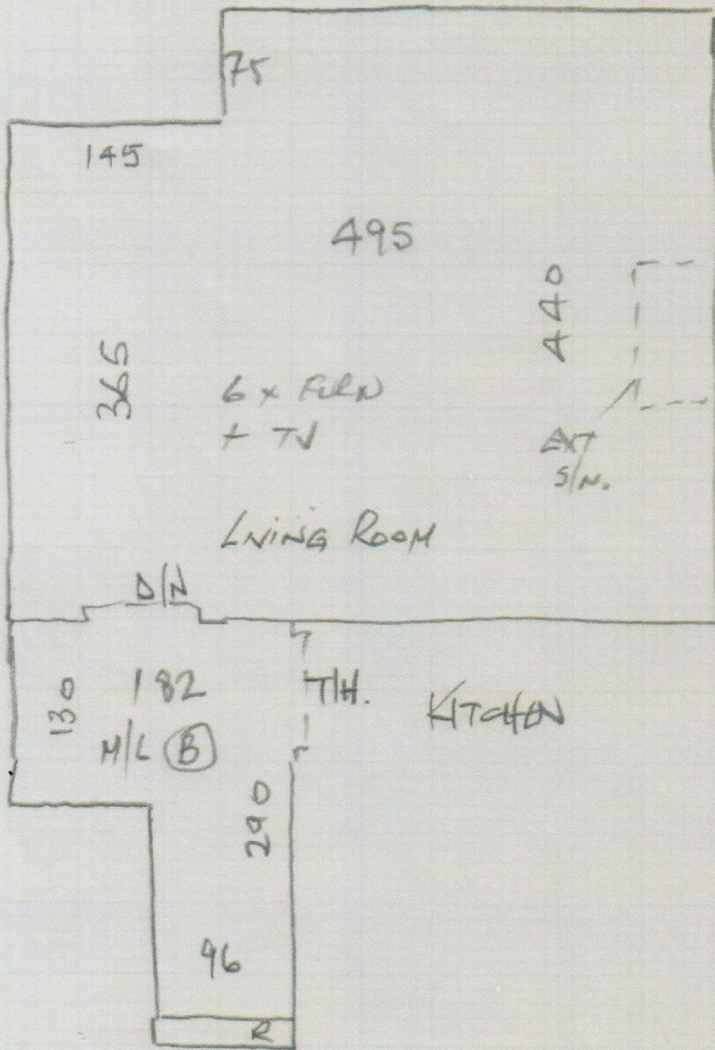 75
145
495
440
365
6 x FURN
+ TV
EXT
S/N.
LIVING ROOM
D/N
182
130
T/H.
KITCHEN
M/L (B)
290
96
R